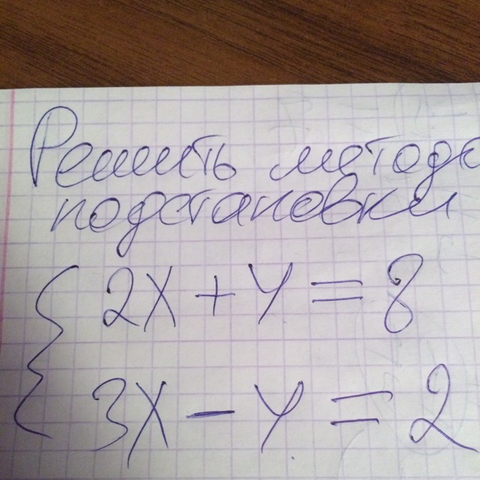 Решить методо
подстановки
2x + y = 8
3x - y = 2